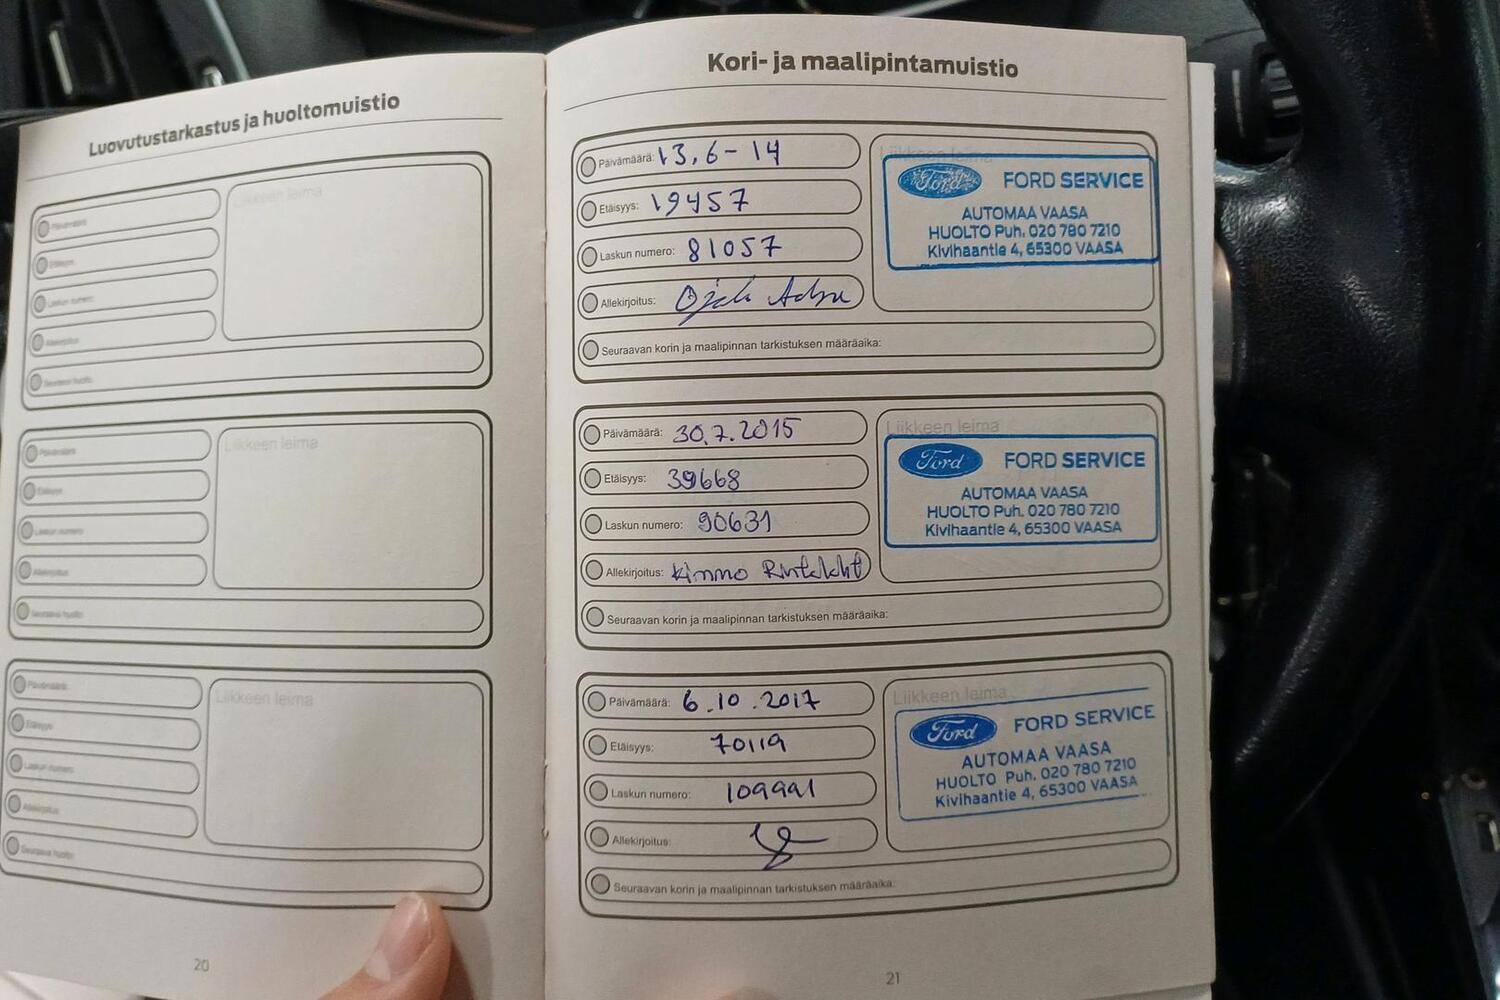 Luovutustarkastus ja huoltomuistio
Päivämäärä:
Etäisyys:
Laskun numero:
Allekirjoitus:
Seuraava huolto:
Liikkeen leima
Päivämäärä:
Etäisyys:
Laskun numero:
Allekirjoitus:
Seuraava huolto:
Liikkeen leima
Päivämäärä:
Etäisyys:
Laskun numero:
Allekirjoitus:
Seuraava huolto:
Liikkeen leima
20
Kori- ja maalipintamuistio
Päivämäärä: 13.6-14
Etäisyys: 19457
Laskun numero: 81057
Allekirjoitus:
Seuraavan korin ja maalipinnan tarkistuksen määräaika:
Liikkeen leima
Ford FORD SERVICE
AUTOMAA VAASA
HUOLTO Puh. 020 780 7210
Kivihaantie 4, 65300 VAASA
Päivämäärä: 30.7.2015
Etäisyys: 39668
Laskun numero: 90631
Allekirjoitus: Kimmo
Seuraavan korin ja maalipinnan tarkistuksen määräaika:
Liikkeen leima
Ford FORD SERVICE
AUTOMAA VAASA
HUOLTO Puh. 020 780 7210
Kivihaantie 4, 65300 VAASA
Päivämäärä: 6.10.2017
Etäisyys: 70119
Laskun numero: 109991
Allekirjoitus:
Seuraavan korin ja maalipinnan tarkistuksen määräaika:
Liikkeen leima
Ford FORD SERVICE
AUTOMAA VAASA
HUOLTO Puh. 020 780 7210
Kivihaantie 4, 65300 VAASA
21